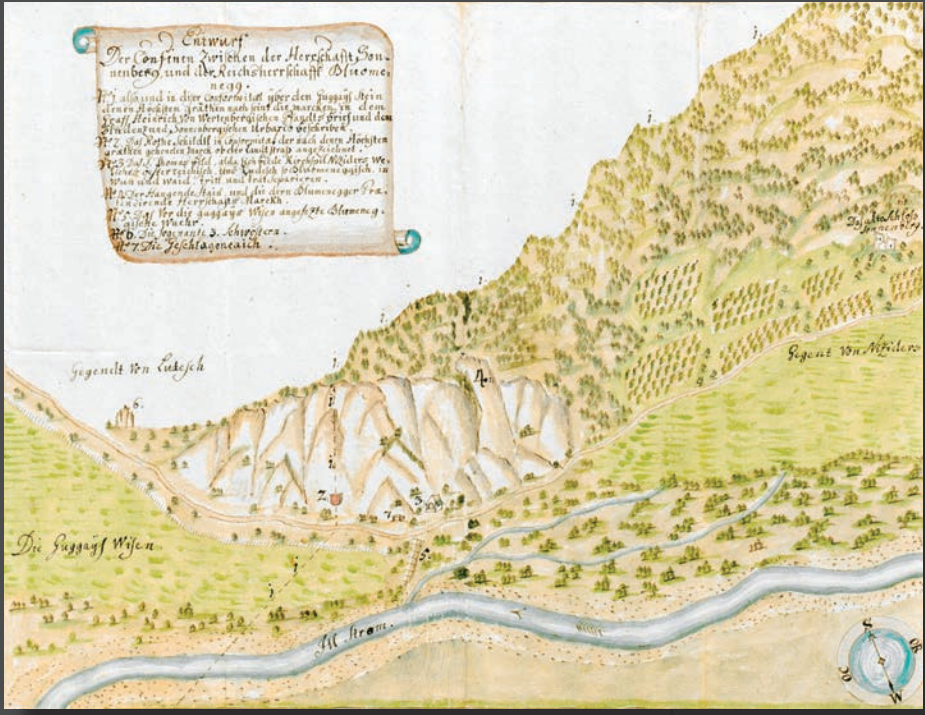 Entwurf
Der Confinen Zwischen der Herrschafft Son-
nenberg, und der Reichsherrschafft Bluome-
negg.
Nº 1. also und in diser Conformitet über den Guggais Stein
denen Höchsten gräthen nach seint die marcken, in dem
Graff Heinrich von Wertenbergischen Pfandts brief und dem
und Sonnenbergischen Urbario beschriben.
Nº 2. Das Rothe schildtl in Conformitet der nach denen Höchsten
gräthen gehenden durch ober landtstrass angezeichnet.
Nº 3 Das S. Thomas bild, alda sich beede Kirchspil Niziders We-
Österreichisch, und Ludesch so Blumeneggisch, in
Wun und Waid, tritt und tratt separieren.
Nº 4 Der Hangende Stain, und die dern Blumenegger Prae-
tendirende Herrschaffts Marckh.
Nº 5. Das Vor die guggais Wisen angesezte Blumeneg-
gische Wuehr.
Nº 6. Die sogenante 3. Schwöstern.
Nº 7. Die Geschlagene aich.
Das alte Schloss
Sonnenberg.
Gegent Von Niziders
Gegendt Von Ludesch
6.
4.
2.
3
7
5.
Die Guggais Wisen
Ill strom.
S
OR
OC
W